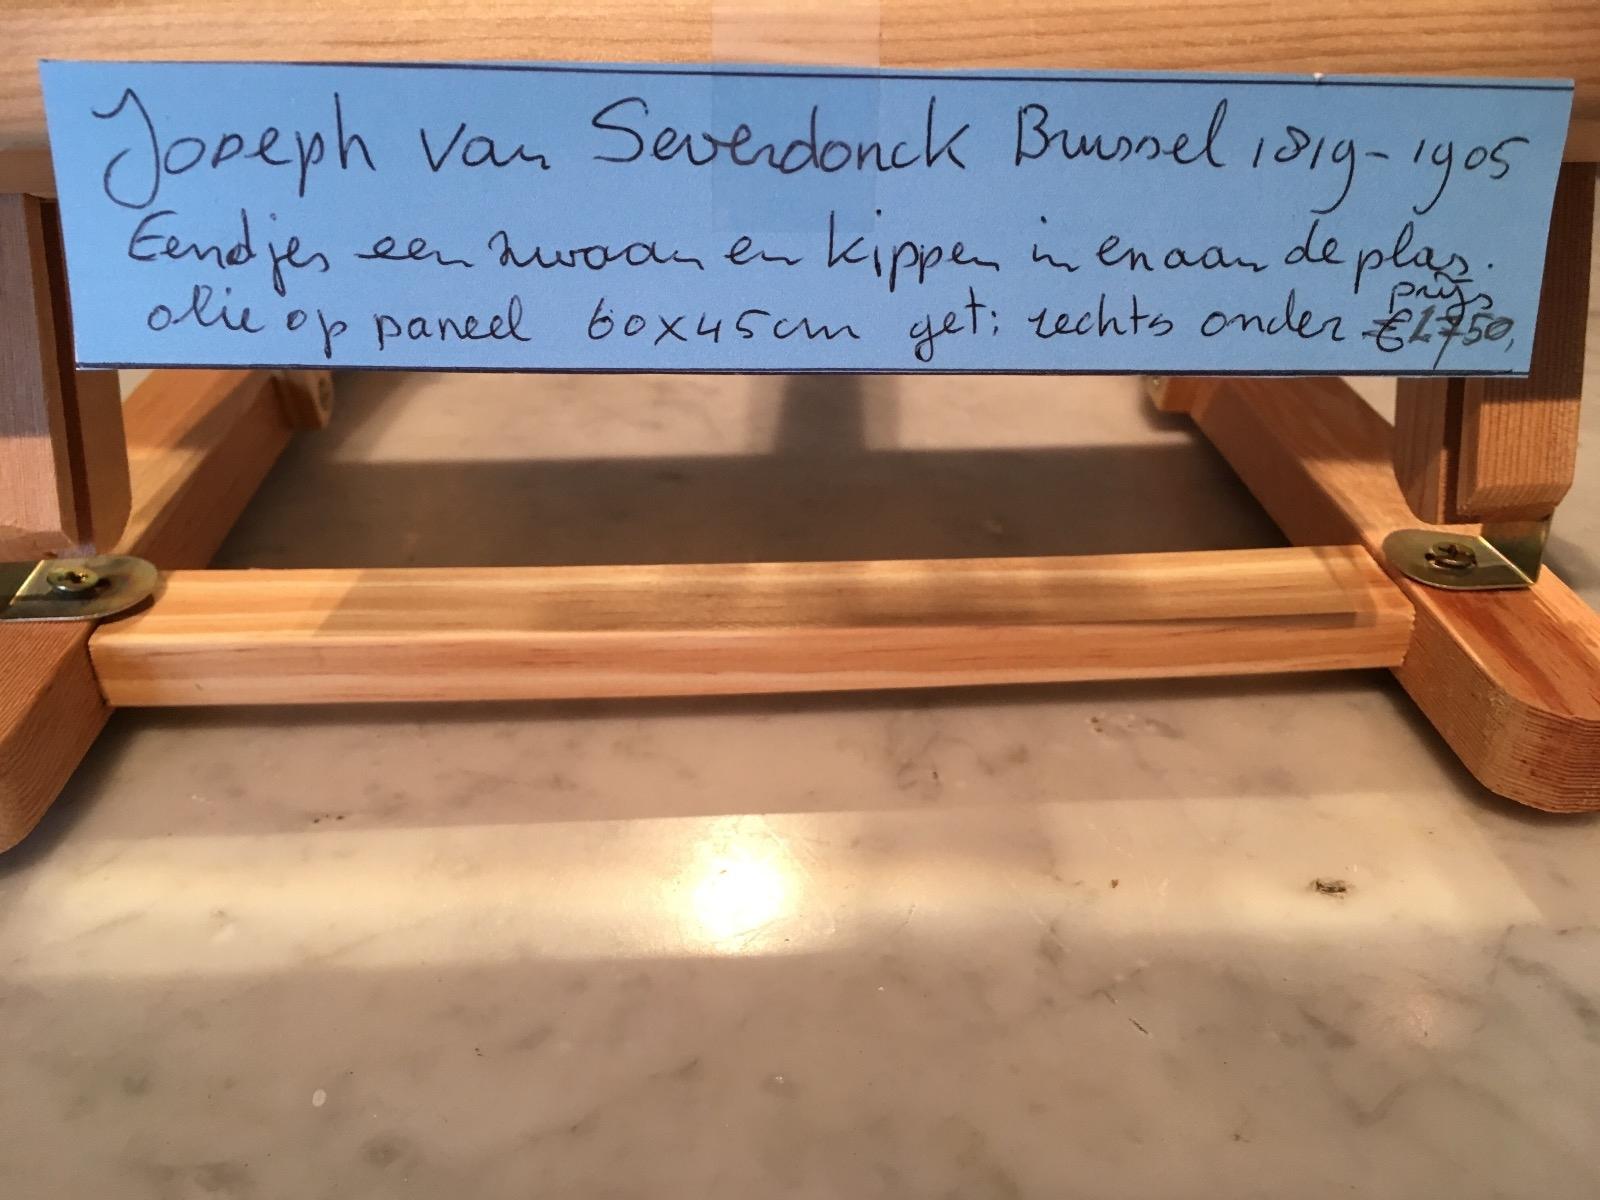 Joseph van Severdonck Brussel 1819-1905
Eendjes een zwaan en kippen in en aan de plas.
prijs
olie op paneel 60x45cm get: rechts onder €1750,